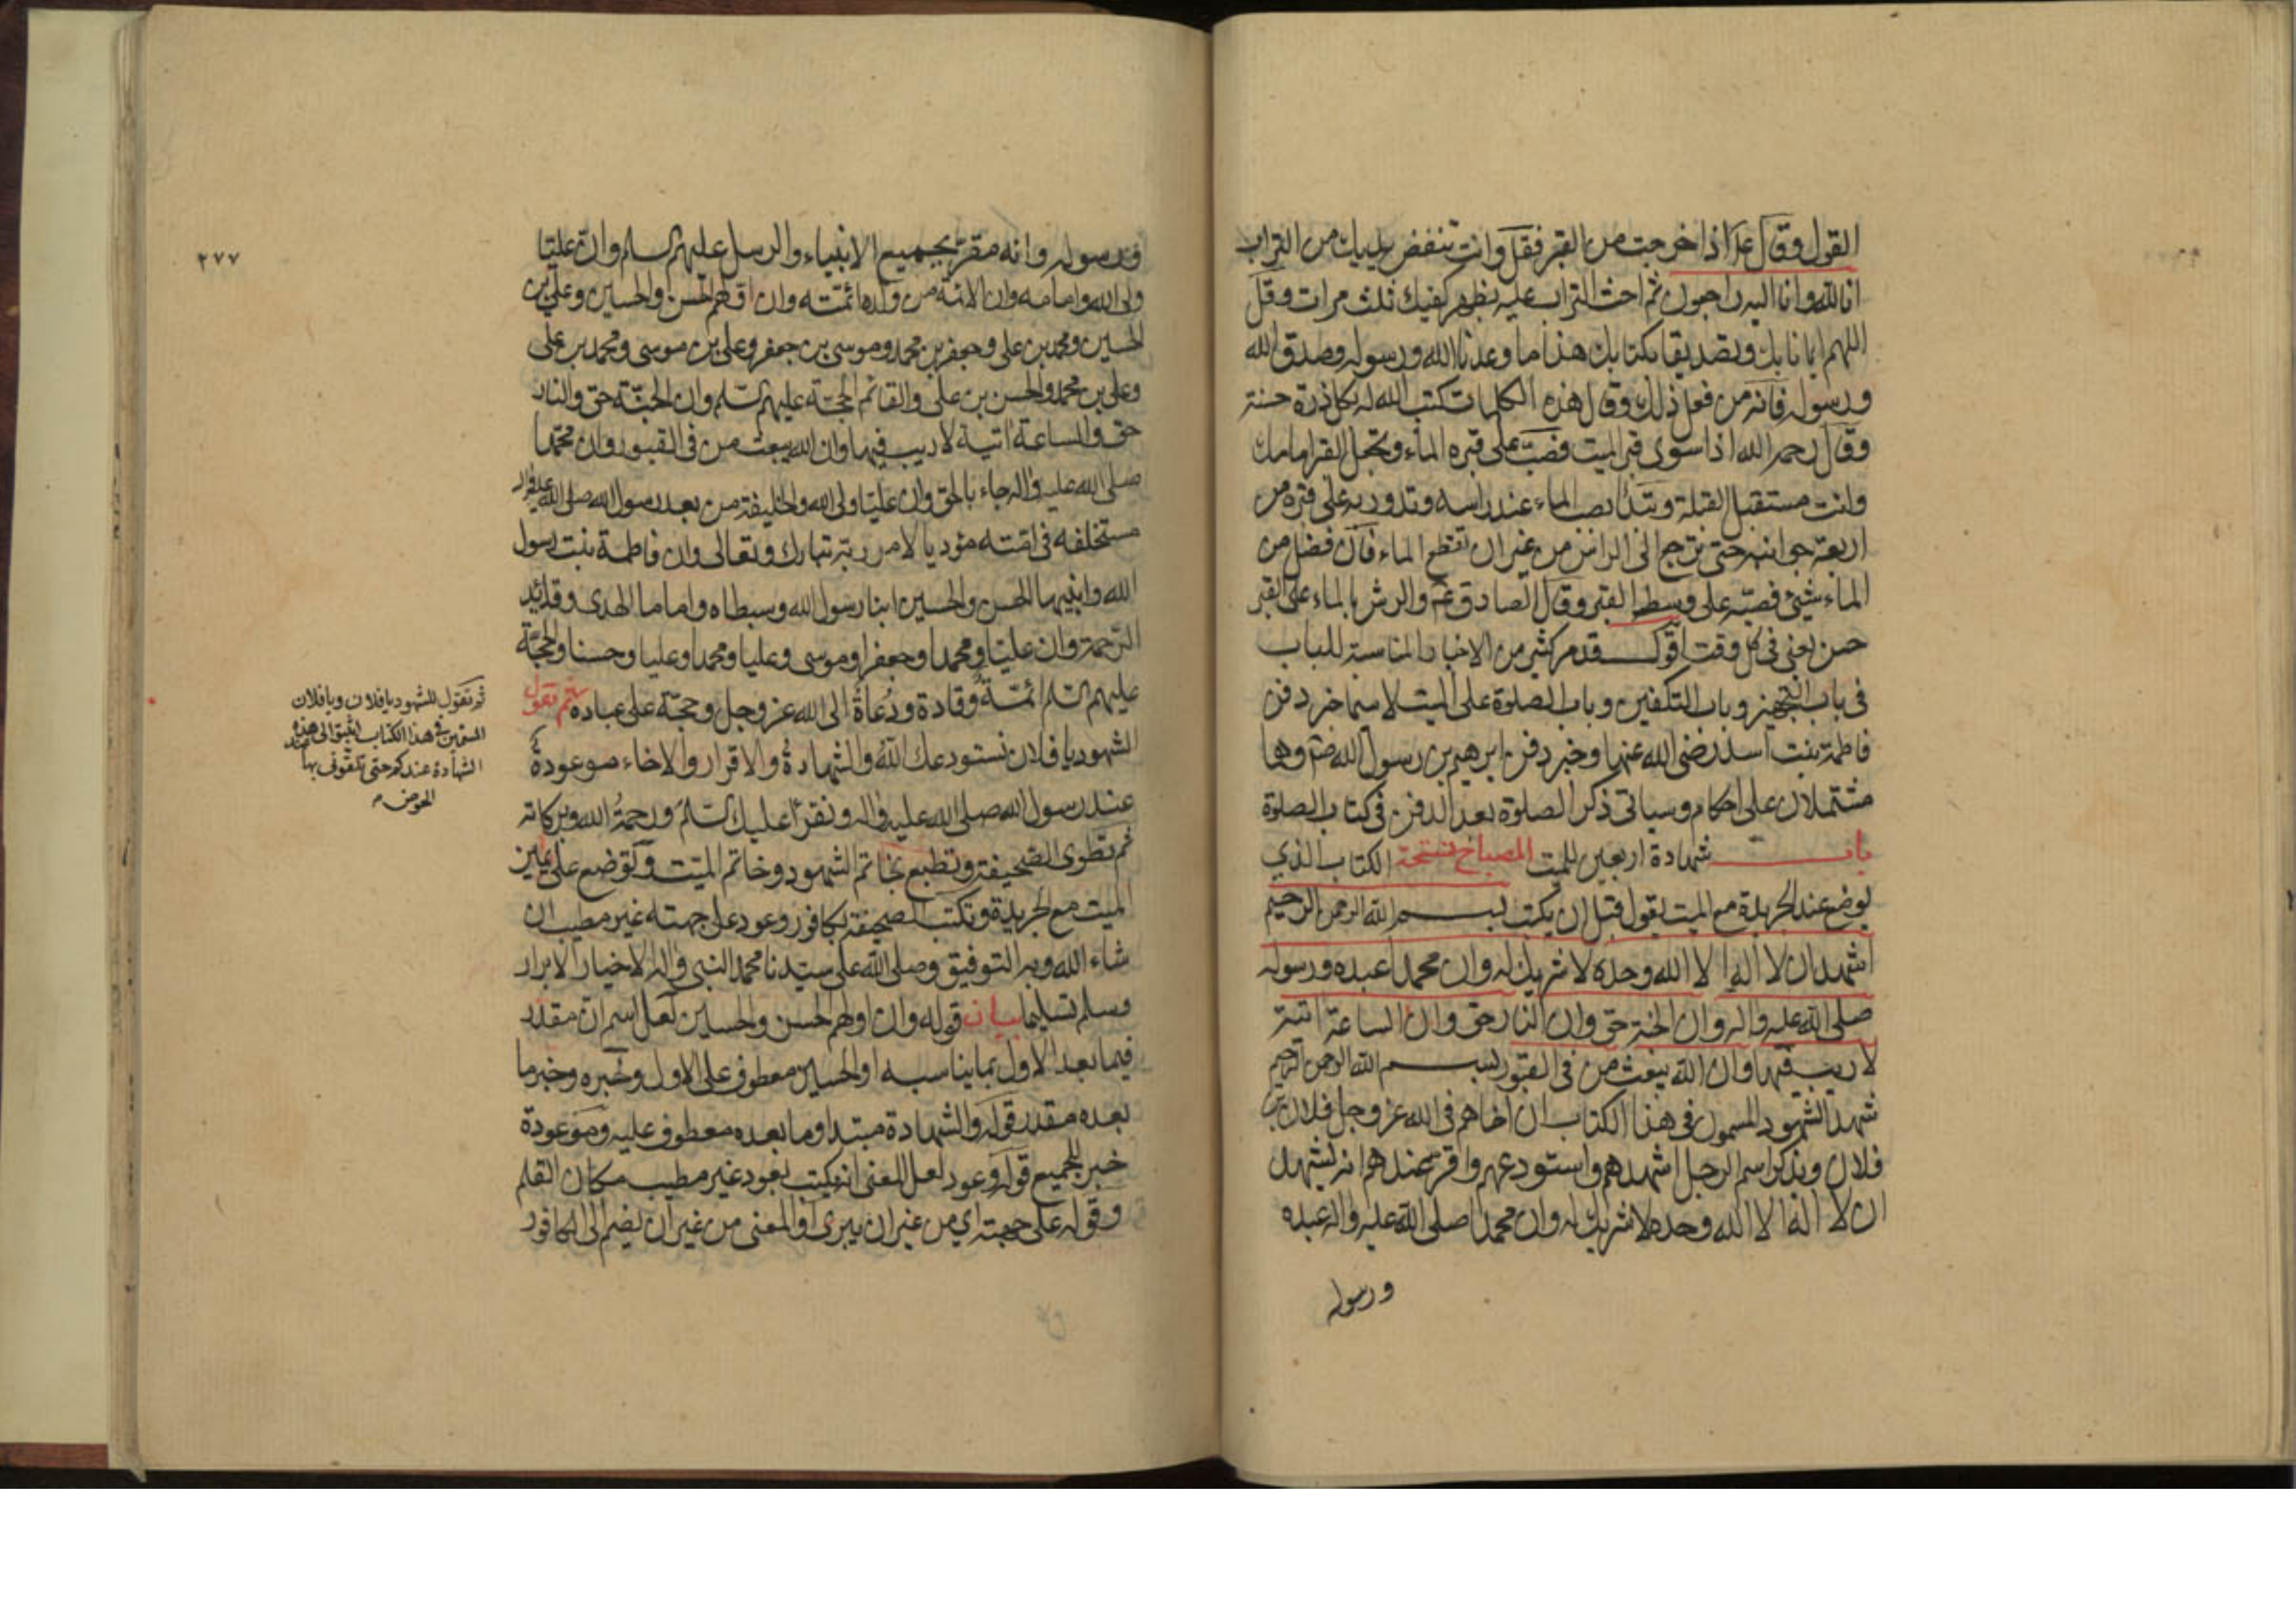 القول وقال ع اذا خرجت من القبر فقل وانت تنفض يديك من التراب
انا لله وانا اليه راجعون ثم احث التراب عليه بظهر كفيك ثلث مرات وقل
اللهم ايمانا بك وتصديقا بكتابك هذا ما وعدنا الله ورسوله وصدق الله
ورسوله فانه من فعل ذلك وقال هذه الكلمات كتب الله له بكل ذرة حسنة
وقال رحمه الله اذا سوى قبر الميت فصب على قبره الماء وتجعل القبر امامك
وانت مستقبل القبلة وتبدأ بصب الماء عند راسه وتدور به على قبره من
اربعة جوانبه حتى ترجع الى الراس من غير ان تقطع الماء فان فضل من
الماء شئ فصبه على وسط القبر وقال الصادق ع والرش بالماء على القبر
حسن يعنى فى كل وقت اقول قد مر كثير من الاخبار المناسبة للباب
فى باب التجهيز وباب التكفين وباب الصلوة على الميت لا سيما خبر دفن
فاطمة بنت اسد رضى الله عنها وخبر دفن ابرهيم بن رسول الله ص وهما
مشتملان على احكام وسياتى ذكر الصلوة بعد الدفن فى كتاب الصلوة
باب شهادة اربعين للميت المصباح نسخة الكتاب الذي
يوضع عند الجريدة مع الميت يقول قبل ان يكتب بسم الله الرحمن الرحيم
اشهد ان لا اله الا الله وحده لا شريك له وان محمدا عبده ورسوله
صلى الله عليه واله وان الجنة حق وان النار حق وان الساعة اتية
لا ريب فيها وان الله يبعث من فى القبور بسم الله الرحمن الرحيم
شهد الشهود المسمون فى هذا الكتاب ان اخاهم فى الله عز وجل فلان بن
فلان ويذكر اسم الرجل اشهدهم واستودعهم واقر عندهم انه يشهد
ان لا اله الا الله وحده لا شريك له وان محمدا صلى الله عليه واله عبده
ورسوله
٢٧٧
ورسوله وانه مقر بجميع الانبياء والرسل عليهم السلم وان عليا
ولى الله وامامه وان الائمة من ولده ائمته وان اولهم الحسن والحسين وعلى بن
الحسين ومحمد بن على وجعفر بن محمد وموسى بن جعفر وعلى بن موسى ومحمد بن على
وعلى بن محمد والحسن بن على والقائم الحجة عليهم السلم وان الجنة حق والنار
حق والساعة اتية لا ريب فيها وان الله يبعث من فى القبور وان محمدا
صلى الله عليه واله جاء بالحق وان عليا ولى الله والخليفة من بعد رسول الله صلى الله عليه واله
مستخلفه فى امته مؤديا لامر ربه تبارك وتعالى وان فاطمة بنت رسول
الله وابنيها الحسن والحسين ابنا رسول الله وسبطاه واماما الهدى وقائدا
الرحمة وان عليا ومحمدا وجعفرا وموسى وعليا ومحمدا وعليا وحسنا والحجة
عليهم السلم ائمة وقادة ودعاة الى الله عز وجل وحجة على عباده ثم تقول
للشهود يا فلان نستودعك الله والشهادة والاقرار والاخاء موعودة
عند رسول الله صلى الله عليه واله ونقرأ عليك السلم ورحمة الله وبركاته
ثم تطوى الصحيفة وتطبع بخاتم الشهود وخاتم الميت وتوضع على يمين
الميت مع الجريدة وتكتب الصحيفة بكافور وعود على جهته غير مطيب ان
شاء الله وبه التوفيق وصلى الله على سيدنا محمد النبى واله الاخيار الابرار
وسلم تسليما بيان قوله وان اولهم الحسن والحسين لعل اسم ان مقدر
فيما بعد الاول بما يناسبه او الحسين معطوف على الاول وخبره وخبر ما
بعده مقدر قوله والشهادة مبتدا وما بعده معطوف عليه وموعودة
خبر للجميع قوله وعود لعل المعنى انه يكتب بعود غير مطيب مكان القلم
وقوله على جهته اي من غير ان يبرى او المعنى من غير ان يضم الى الكافور
ثم تقول للشهود يا فلان ويا فلان
المسمين فى هذا الكتاب اثبتوا لى هذه
الشهادة عندكم حتى تلقونى بها عند
الحوض